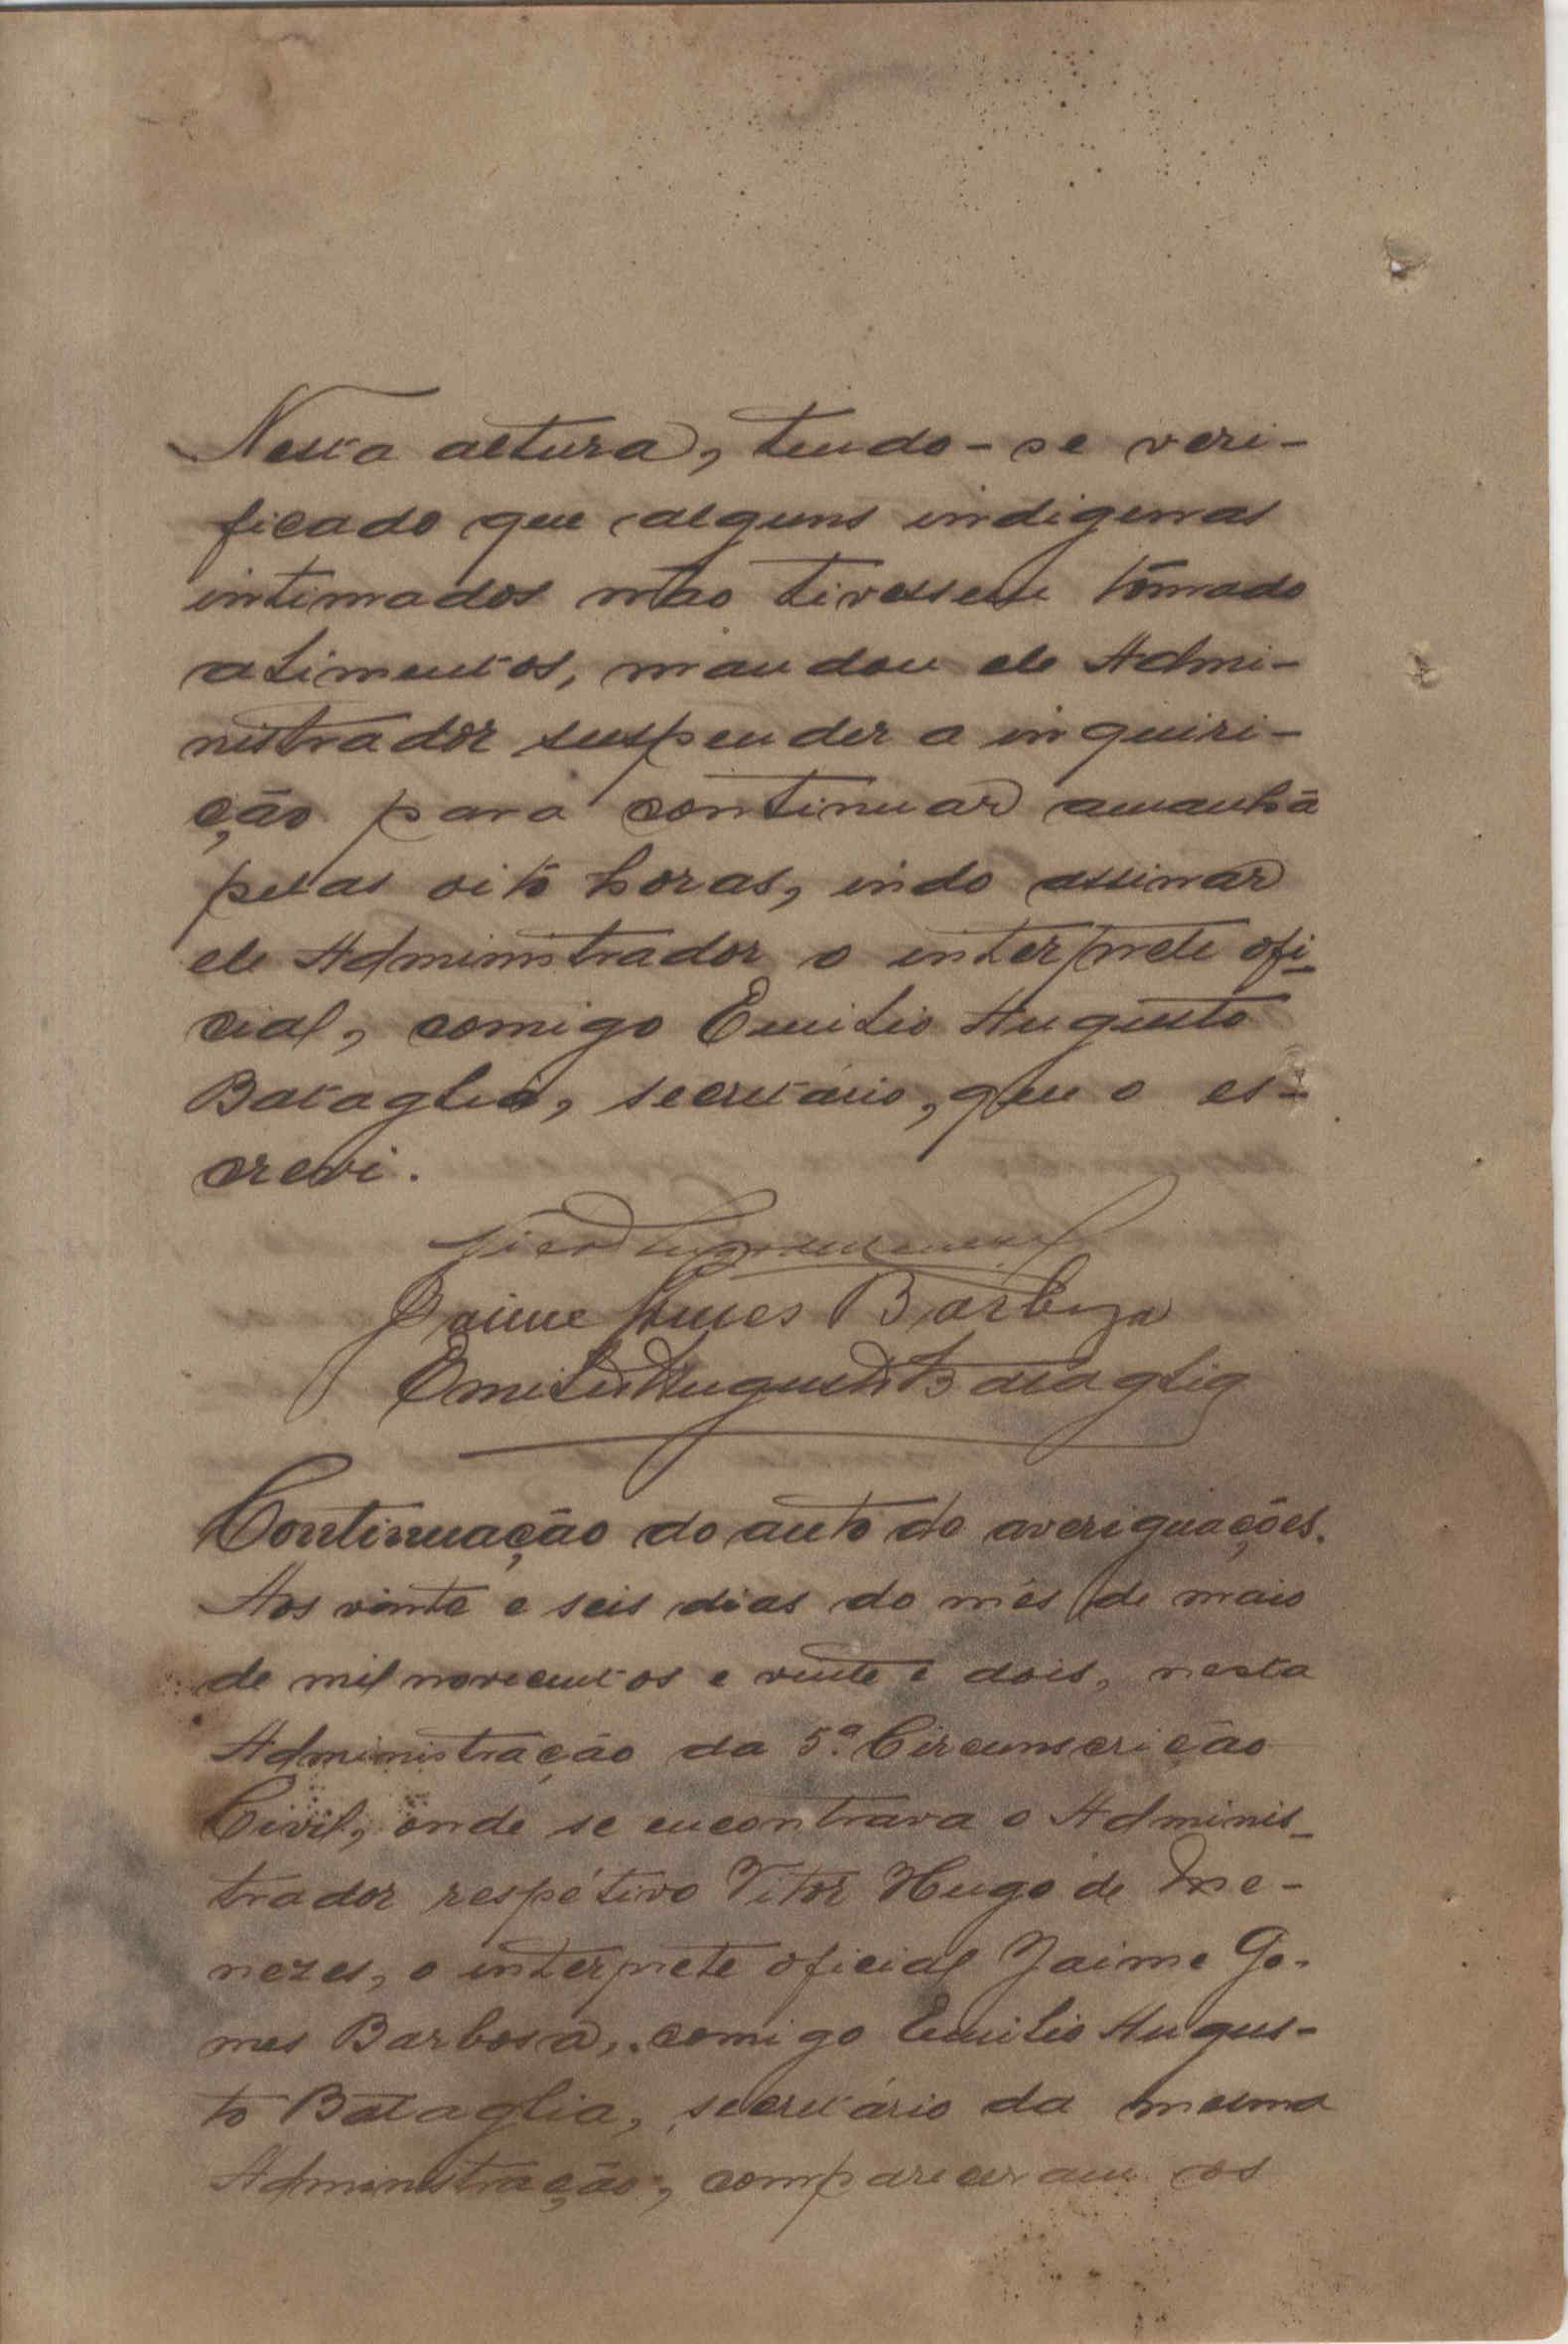 Nesta altura, tendo-se veri-
ficado que alguns indigenas
intimados não tivessem tômado
alimentos, mandou ele Admi-
nistrador suspender a inquiri-
ção para continuar amanhã
pelas oito horas, indo assinar
ele Administrador o interprete ofi-
cial, comigo Emilio Augusto
Bataglia, secretário, que o es-
crevi.
Jaime Gomes Barboza
Emilio Augusto Bataglia
Continuação do auto de averiguações.
Aos vinte e seis dias do mês de maio
de mil novecentos e vinte e dois, nesta
Administração da 5.ª Circunscrição
Civil, onde se encontrava o Adminis-
trador respétivo Vitor Hugo de Me-
nezes, o interprete oficial Jaime Go-
mes Barbosa, comigo Emilio Augus-
to Bataglia, secretário da mesma
Administração, compareceram os